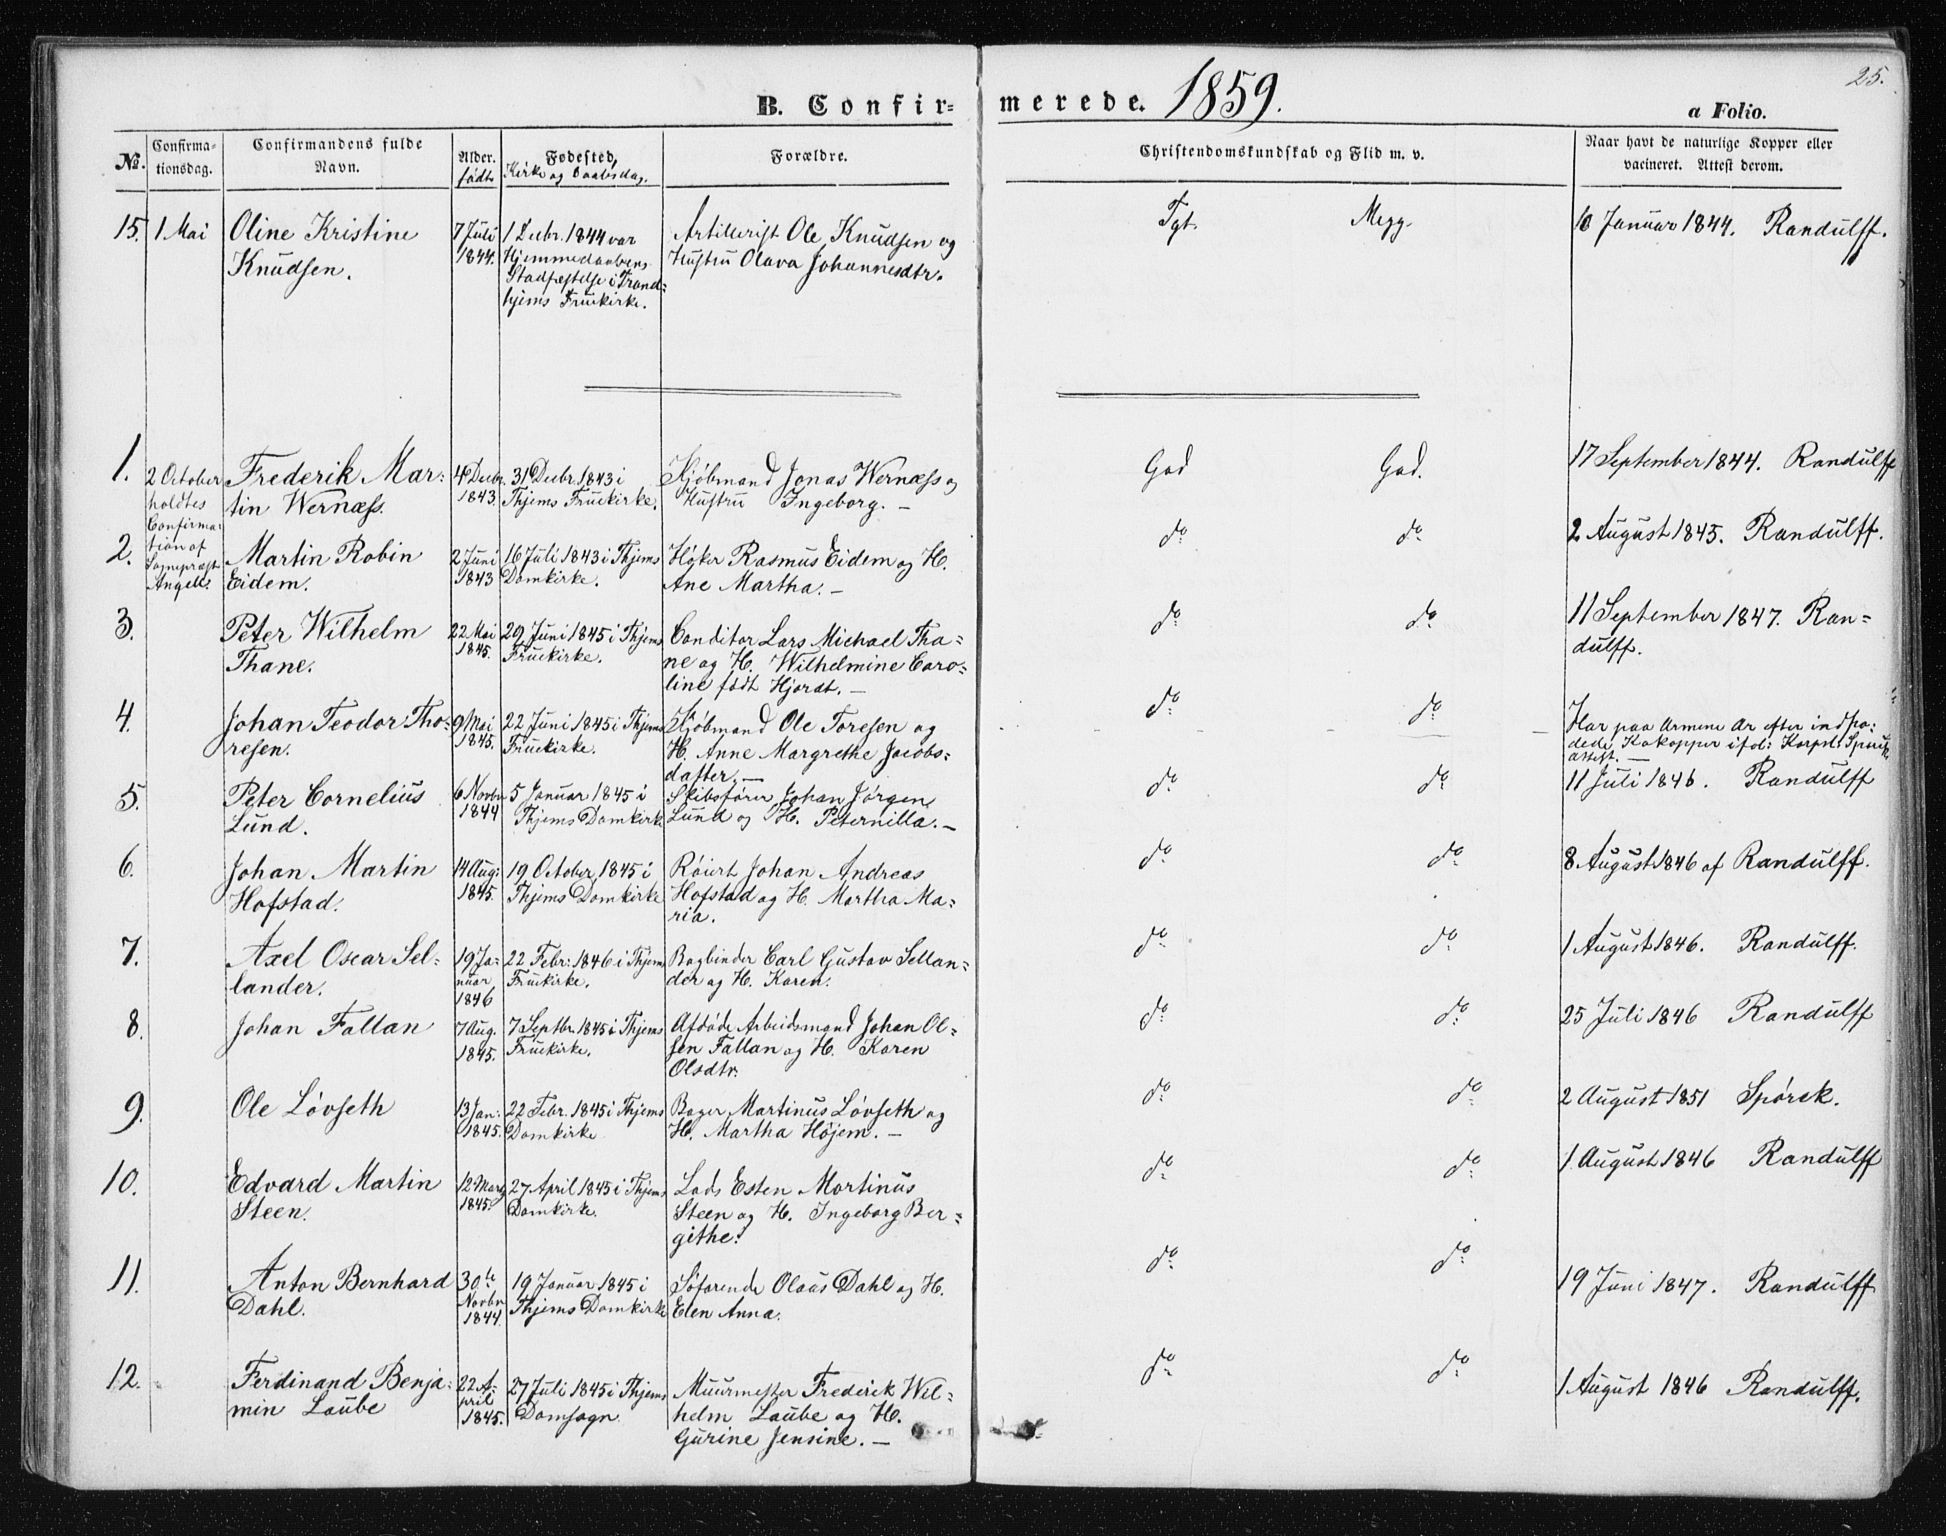 B. Confir=
merede. 1859.
25.
a Folio.
No.
Confirma-
tionsdag.
Confirmandens fulde
Navn.
Alder.
født
Fødested,
Kirke og Daabsdag.
Forældre.
Christendomskundskab og Flid m. v.
Naar havt de naturlige Kopper eller
vacineret. Attest derom.
15.
1 Mai
Oline Kristine
Knudsen.
7 Juli
1844.
1 Decbr. 1844 var
Hjemmedaabens
Stadfæstelse i Trond=
hjems Fruekirke.
Artillerist Ole Knudsen og
Hustru Olava Johannesdtr.
Tgt.
Megg.
10 Januar 1844. Randulff.
1.
2 October
holdtes
Confirma-
tion af
Sognepræst
Angell.
Frederik Mar=
tin Wernæss.
4 Decbr.
1843.
31 Decbr. 1843 i
Thjems Fruekirke.
Kjøbmand Jonas Wernæss og
Hustru Ingeborg. —
God
God.
17 September 1844. Randulff
2.
Martin Robin
Eidem.
2 Juni
1843
16 Juli 1843 i Thjems
Domkirke.
Høker Rasmus Eidem og H.
Ane Martha. —
do
do
2 August 1845. Randulff.
3.
Peter Wilhelm
Thane.
22 Mai
1845.
29 Juni 1845 i Thjems
Fruekirke.
Conditor Lars Michael Tha=
ne og H. Wilhelmine Caro=
line født Hjordt. —
do
do
11 September 1847. Ran=
dulff.
4.
Johan Teodor Tho=
resen.
9 Mai
1845.
22 Juni 1845 i Thjems
Fruekirke.
Kjøbmand Ole Toresen og
H. Anne Margrethe Jacobs=
datter. —
do
do
Har paa Armene Ar efter indpo=
dede Kokopper iføl: Korpsl:
attest. —
5.
Peter Cornelius
Lund.
6 Novbr
1844
5 Januar 1845 i
Thjems Domkirke
Skibsfører Johan Jørgen
Lund og H. Peternilla. —
do
do
11 Juli 1846. Randulff
6.
Johan Martin
Hofstad.
14 Aug:
1845.
19 October 1845 i
Thjems Domkirke
Røiert Johan Andreas
Hofstad og H. Martha Ma=
ria.
do
do
8 August 1846 af Randulff.
7.
Axel Oscar Sel=
lander.
19 Ja=
nuar
1846
22 Febr: 1846 i Thjems
Fruekirke.
Bogbinder Carl Gustav Sellan=
der og H. Karen.
do
do
1 August 1846. Randulff.
8.
Johan Fallan
7 Aug.
1845.
7 Septbr. 1845 i Thjems
Fruekirke.
Afdøde Arbeidsmand Johan Ol=
sen Fallan og H. Karen
Olsdtr.
do
do
25 Juli 1846 Randulff
9.
Ole Løvseth
13 Jan:
1845.
22 Febr. 1845 i Thjems
Domkirke
Bager Martinus Løvseth og
H. Martha Højem. —
do
do
2 August 1851 Spørck.
10.
Edvard Martin
Steen.
12 Marts
1845.
27 April 1845 i Thjems
Domkirke.
Lods Esten Martinus
Steen og H. Ingeborg Ber=
githe.
do
do
1 August 1846 Randulff
11.
Anton Bernhard
Dahl.
30te
Novbr
1844.
19 Januar 1845 i
Thjems Domkirke
Søfarende Olaus Dahl og H.
Elen Anna.
do
do
19 Juni 1847. Randulff
12.
Ferdinand Benja=
min Laube
22 A=
pril
1845.
27 Juli 1845 i Thjems
Domsogn
Muurmester Frederik Wil=
helm Laube og H.
Gurine Jensine. —
do
do
1 August 1846 Randulff.